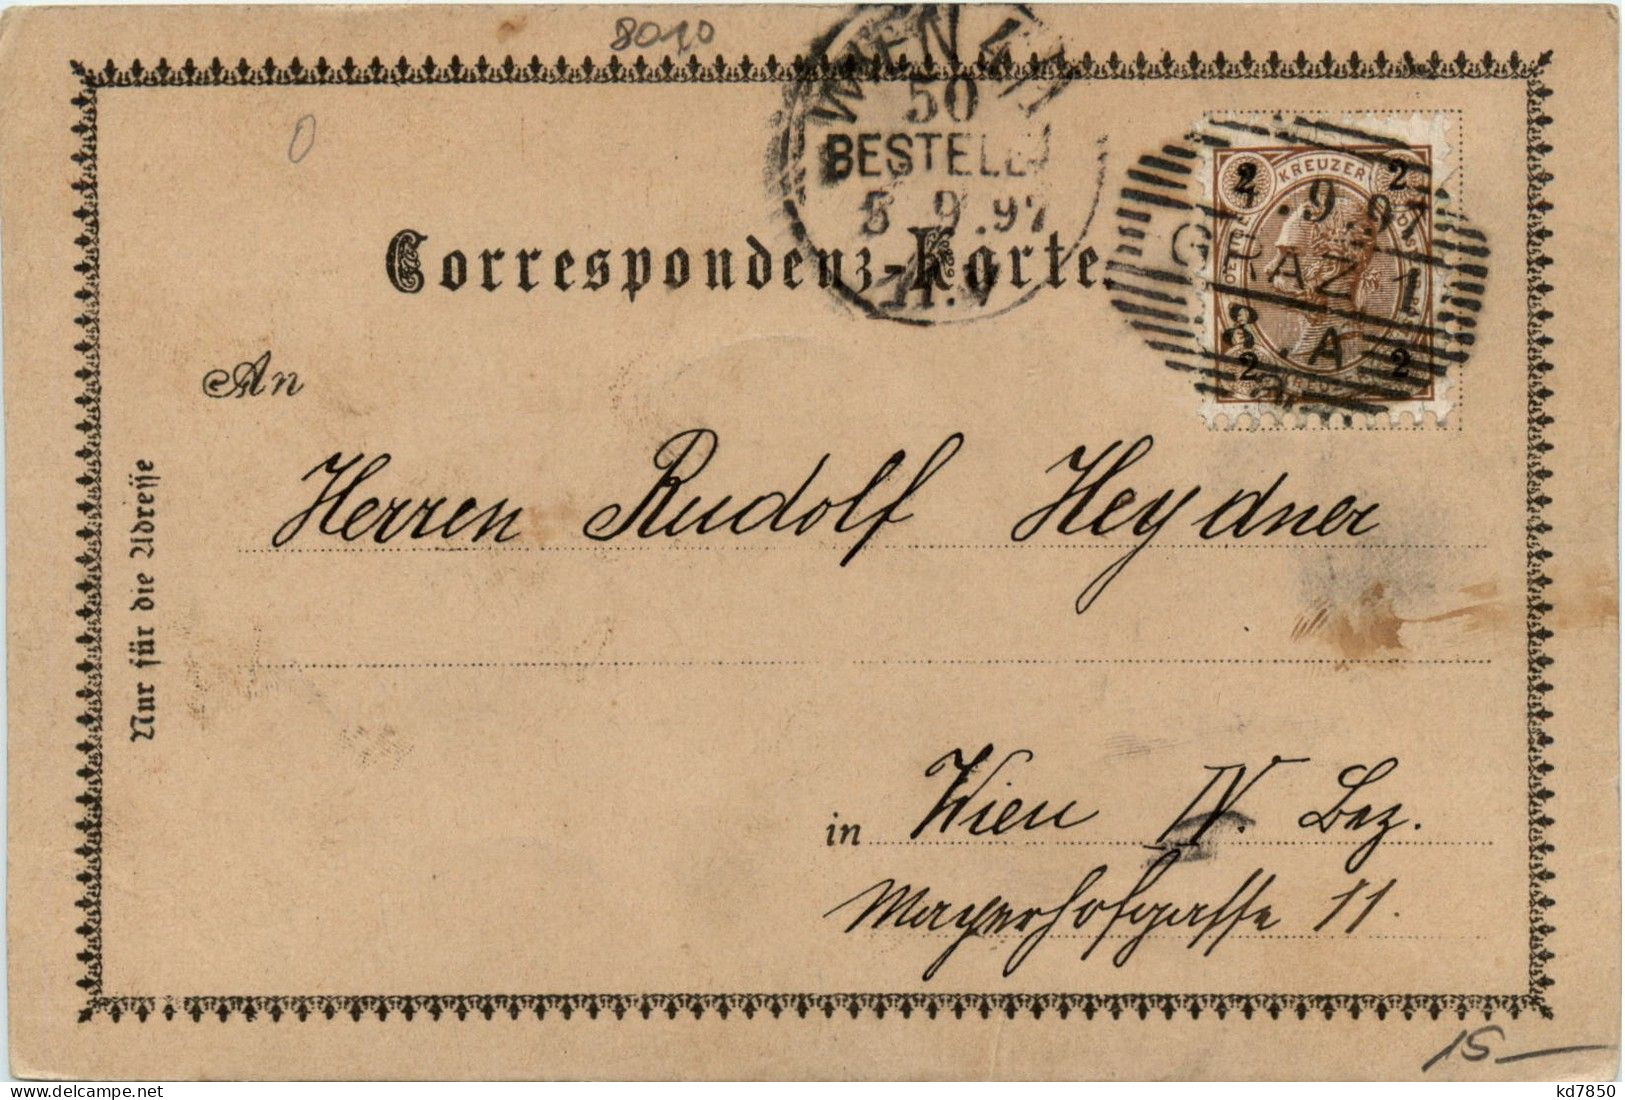 8010
0
WIEN 4/1
50
BESTELLT
5 9.97
11.V
KREUZER
2 2
.9.97
GRAZ 1
8.A
2 2
Correspondenz-Karte.
An
Herren Rudolf Heydner
Nur für die Adresse
in Wien IV. Bez.
Mayerhofgasse 11.
15-
kd7850